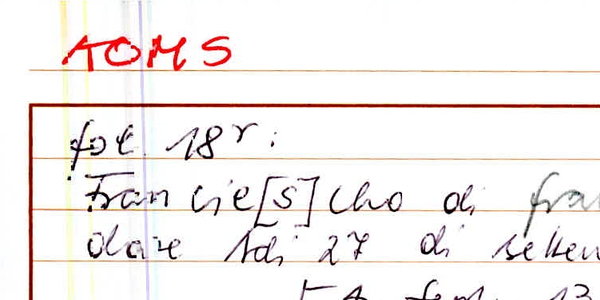 AOMS
fol. 18r:
Francie[s]cho di fra
dare Adi 27 di setten